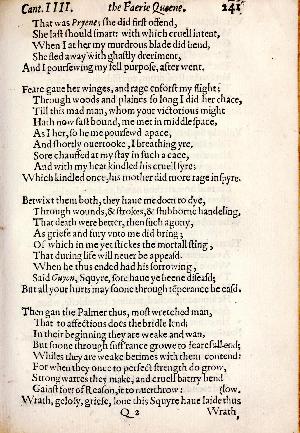 Cant. IIII. the Faerie Queene. 241
That was Pryene; she did first offend,
She last should smart: with which cruell intent,
When I at her my murdrous blade did bend,
She fled away with ghastly dreriment,
And I poursewing my fell purpose, after went.
Feare gaue her winges, and rage enforst my flight;
Through woods and plaines so long I did her chace,
Till this mad man, whom your victorious might
Hath now fast bound, me met in middle space,
As I her, so he me poursewd apace,
And shortly ouertooke, I breathing yre,
Sore chauffed at my stay in such a cace,
And with my heat kindled his cruell fyre;
Which kindled once, his mother did more rage inspyre.
Betwixt them both, they haue me doen to dye,
Through wounds, & strokes, & stubborne handeling,
That death were better, then such agony,
As griefe and fury vnto me did bring;
Of which in me yet stickes the mortall sting,
That during life will neuer be appeasd.
When he thus ended had his sorrowing,
Said Guyon, Squyre, sore haue ye beene diseasd;
But all your hurts may soone through tẽperance be easd.
Then gan the Palmer thus, most wretched man,
That to affections does the bridle lend;
In their beginning they are weake and wan,
But soone through suff'rance growe to fearefull end;
Whiles they are weake betimes with them contend:
For when they once to perfect strength do grow,
Strong warres they make, and cruell battry bend
Gainst fort of Reason, it to ouerthrow:
(low.
Wrath, gelosy, griefe, loue this Squyre haue laide thus
Q 2 Wrath,